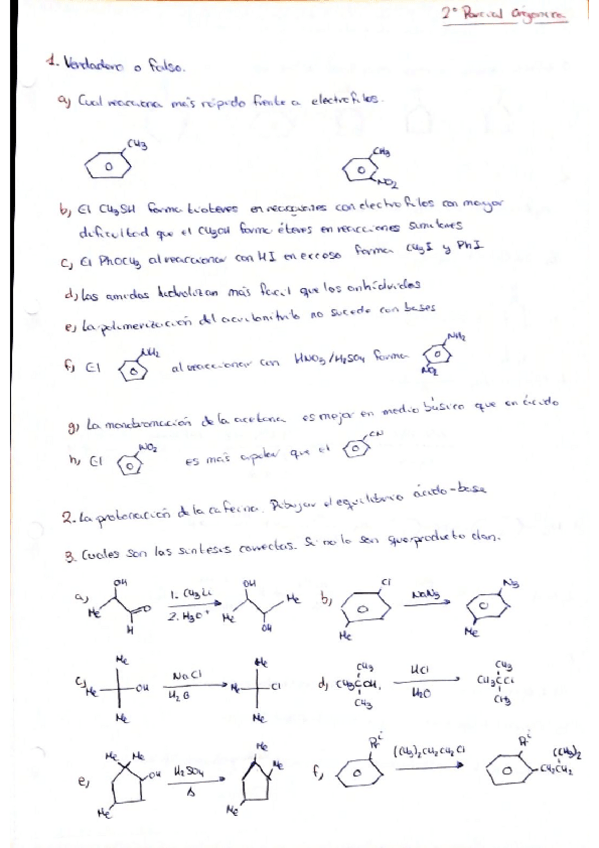 2º Parcial Orgánica
1. Verdadero o falso.
a) Cual reacciona más rápido frente a electrófilos.
CH3 CH3
NO2
b) El CH3SH forma tioéteres en reacciones con electrófilos con mayor
dificultad que el CH3OH forma éteres en reacciones similares
c) El PhOCH3 al reaccionar con HI en exceso forma CH3I y PhI.
d) Las amidas hidrolizan más fácil que los anhídridos
e) La polimerización del acrilonitrilo no sucede con bases
f) El NH2 al reaccionar con HNO3/H2SO4 forma NH2
NO2
g) La monobromación de la acetona es mejor en medio básico que en ácido
h) El NO2 es más apolar que el CN
2. La protonación de la cafeína. Dibujar el equilibrio ácido-base
3. Cuales son las síntesis correctas. Si no lo son que producto dan.
a) OH Me O H 1. CH3Li 2. H3O+ OH Me Me OH b) Cl Me NaN3 N3 Me
c) Me Me OH Me NaCl H2O Me Me Cl Me d) CH3 CH3COH CH3 HCl H2O CH3 CH3CCl CH3
e) Me Me OH Me H2SO4 Δ Me Me Me f) (CH3)2CH2CH2Cl (CH3)2